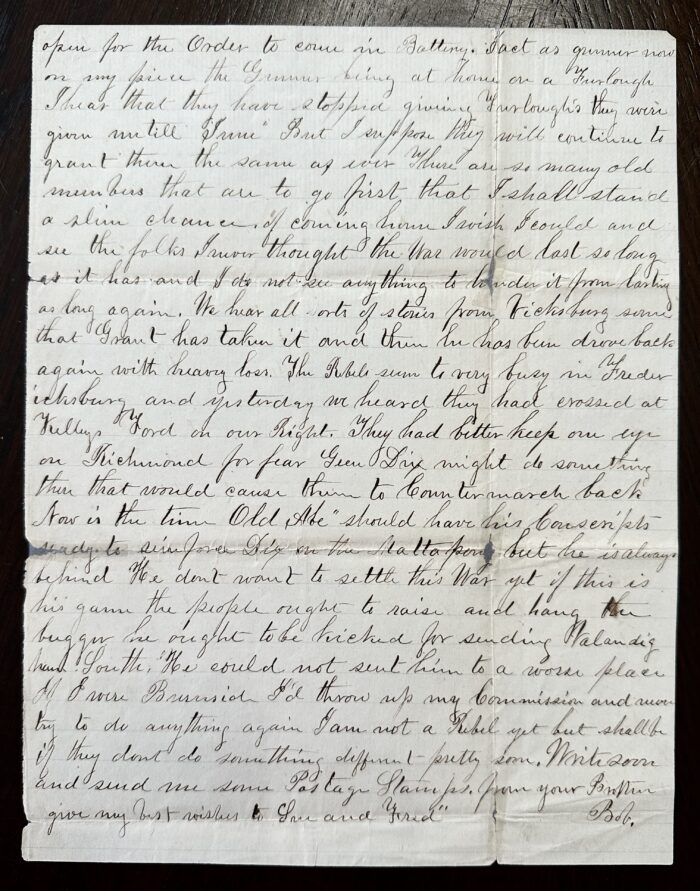 open for the Order to come in Battery. I act as gunner now
on my piece the Gunner being at home on a Furlough
I hear that they have stopped giving Furloughs they were
given untill "June" But I suppose they will continue to
grant them the same as ever There are so many old
members that are to go first that I shall stand
a slim chance, of coming home I wish I could and
see the folks I never thought the War would last so long
as it has and I do not see anything to hinder it from lasting
as long again. We hear all sorts of stories from Vicksburg some
that Grant has taken it and then he has been drove back
again with heavy loss. The Rebels seem to very busy in Freder
icksburg and yesterday we heard they had crossed at
Kelleys Ford on our Right. They had better keep one eye
on Richmond for fear Geen Dix might do something
there that would cause them to Countermarch back
Now is the time Old Abe" should have his Conscripts
ready to reinforce Dix on the Mattapony but he is always
behind He dont want to settle this War yet if this is
his game the people ought to raise and hang the
bugger he ought to be kicked for sending Valandig
ham South, He could not sent him to a worse place
If I were Burnside I'd throw up my Commission and never
try to do anything again I am not a Rebel yet but shall be
if they dont do something different pretty soon. Write soon
and send me some Postage Stamps. from your Brother
give my best wishes to Sue and Fred" Bob.